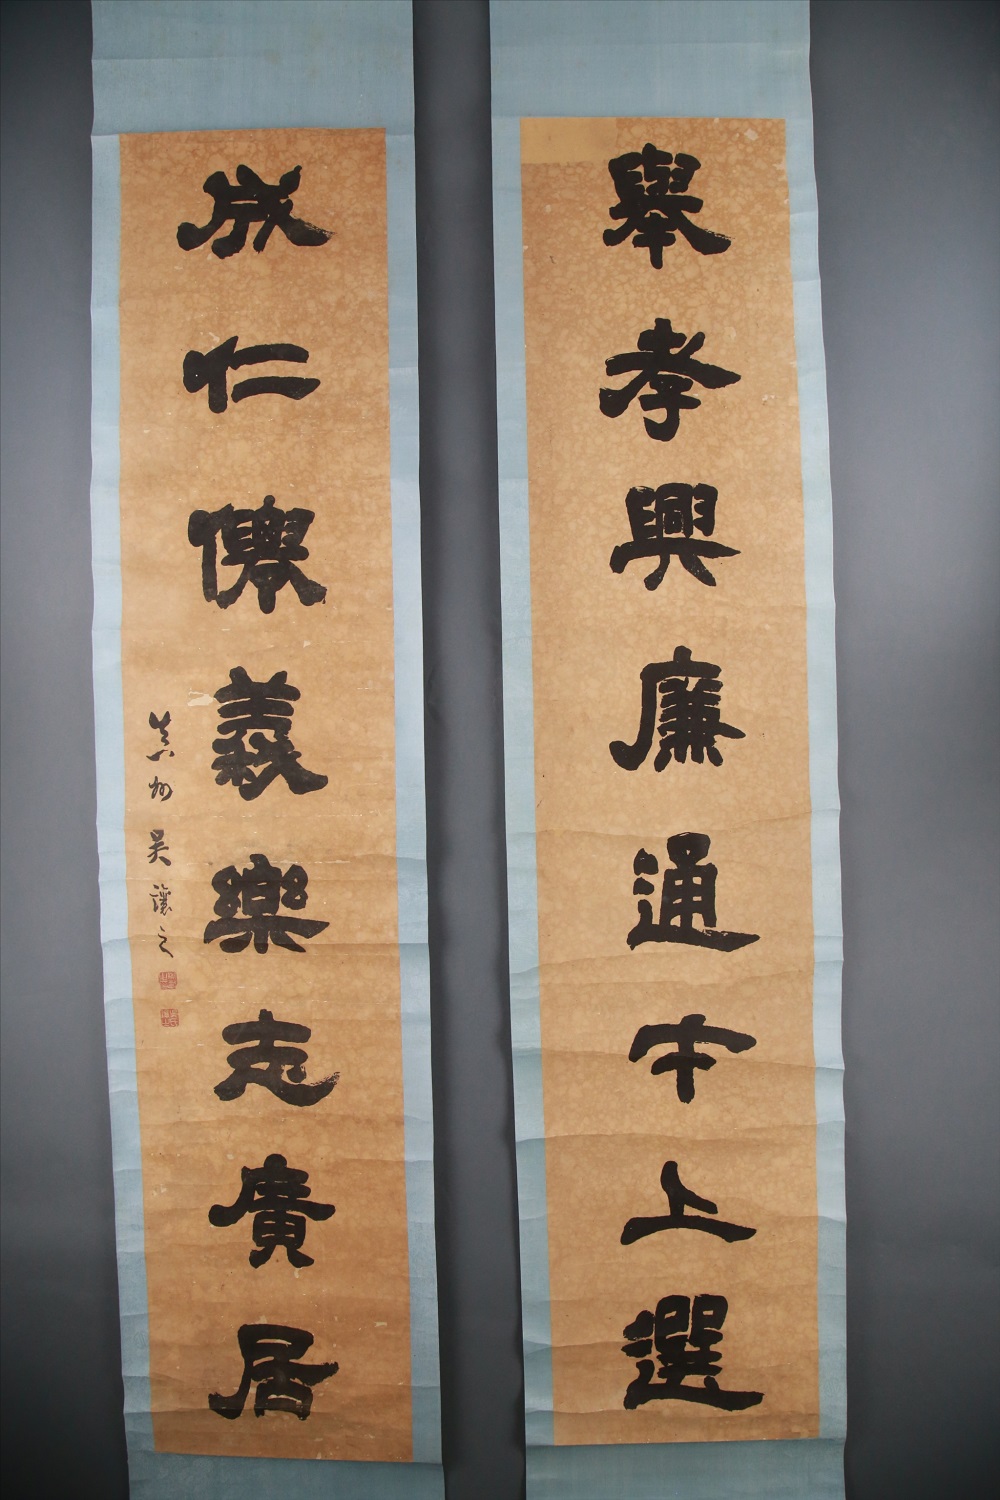 舉孝興廉通才上選
成仁義樂志廣居
真州吳讓之